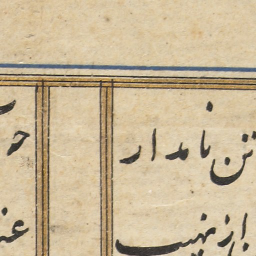 تن نامدار
از نهیب